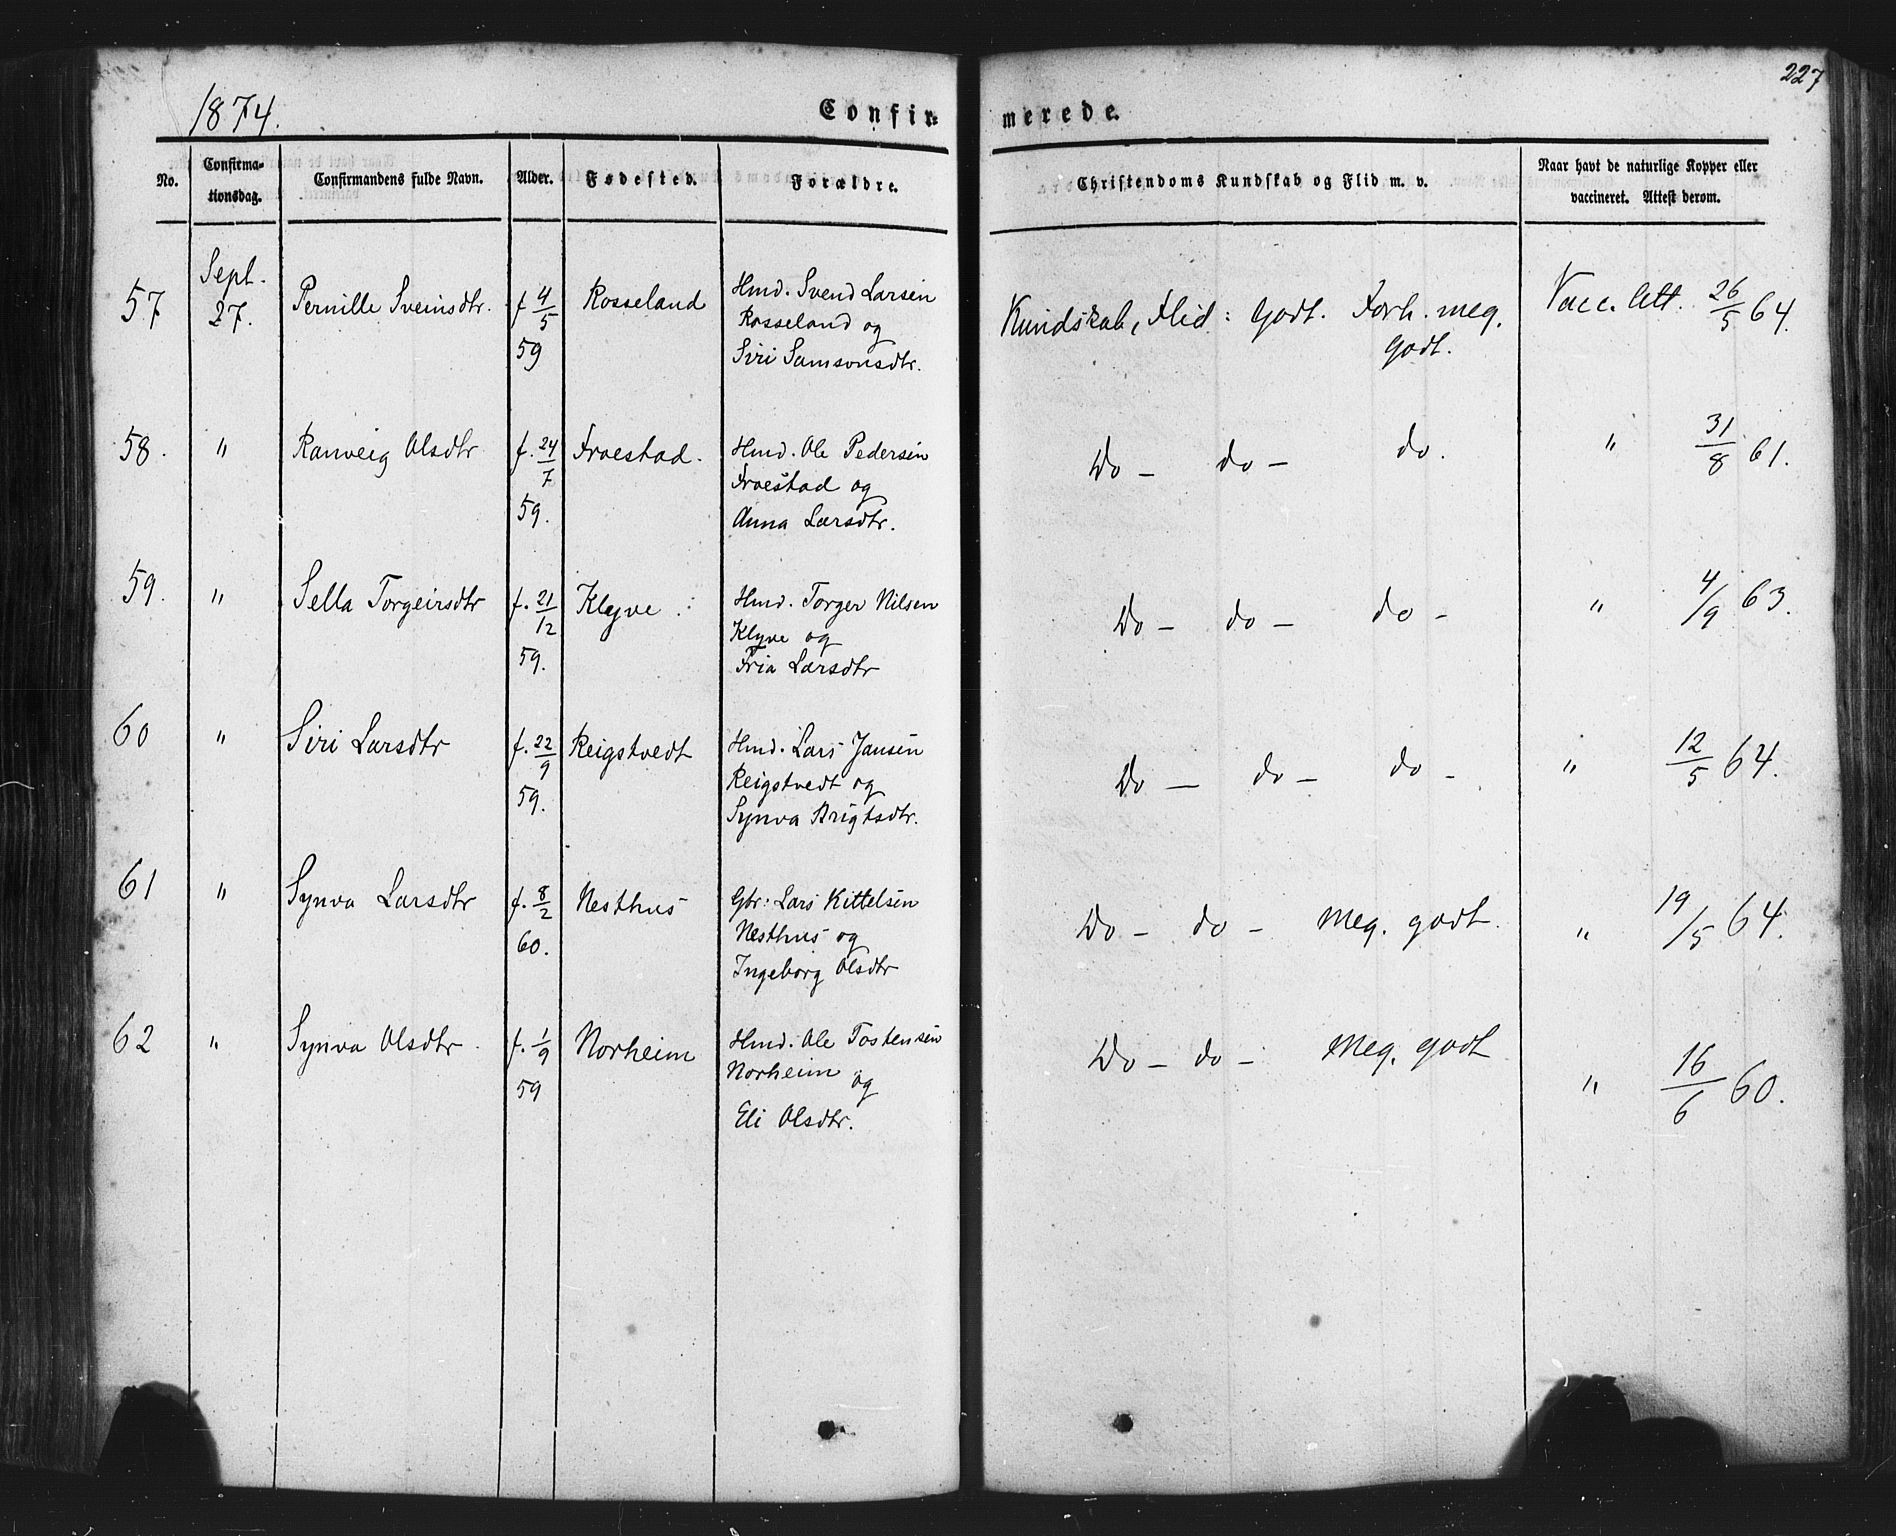 227
1874.
Confir-
merede.
No.
Confirma-
tionsdag.
Confirmandens fulde Navn.
Alder.
Fødested.
Forældre.
Christendoms Kundskab og Flid m. v.
Naar havt de naturlige Kopper eller
vaccineret. Attest derom.
57
Sept.
27.
Pernille Sveinsdtr.
f. 4/5
59
Rosseland
Hmd. Svend Larsen
Rosseland og
Siri Samsonsdtr.
Kundskab, Flid: Godt. Forh. meg.
Godt.
Vacc. Att. 26/5 64.
58.
"
Ranveig Olsdtr
f. 24/7
59.
Froestad.
Hmd. Ole Pedersen
Froestad og
Anna Larsdtr.
Do – do – do.
" 31/8 61.
59.
"
Sella Torgeirsdtr
f. 21/12
59.
Klyve
Hmd. Torger Nilsen
Klyve og
Larsdtr
Do – do – do –
" 4/9 63.
60
"
Siri Larsdtr
f. 22/9
59.
Reigstvedt
Hmd. Lars Jansen
Reigstvedt og
Synva Brigtsdtr.
Do – do – do –
" 12/5 64.
61
"
Synva Larsdtr
f. 8/2
60.
Nesthus
Gbr: Lars Kittelsen
Nesthus og
Ingeborg Olsdtr
Do – do – Meg. godt.
" 19/5 64.
62
"
Synva Olsdtr
f. 1/9
59
Norheim
Hmd. Ole Tostensen
Norheim og
Eli Olsdtr.
Do – do – Meg. godt
" 16/6 60.